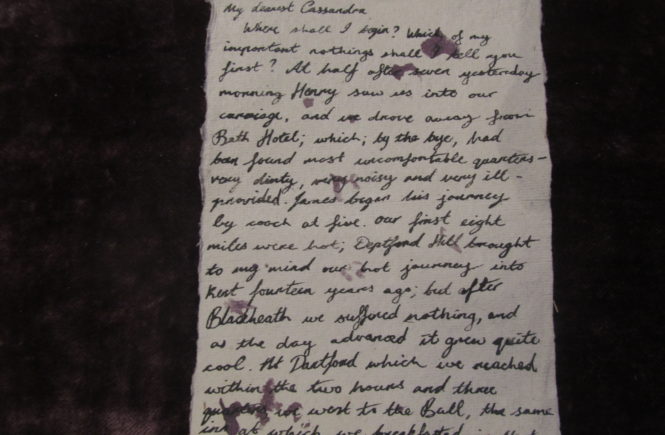 My dearest Cassandra
Where shall I begin? Which of my
important nothings shall I tell you
first? At half after seven yesterday
morning Henry saw us into our
carriage, and we drove away from
Bath Hotel; which, by the bye, had
been found most uncomfortable quarters-
very dirty, very noisy and very ill-
provided. James began his journey
by coach at five. Our first eight
miles were hot; Deptford Hill brought
to my mind our hot journey into
Kent fourteen years ago; but after
Blackheath we suffered nothing, and
as the day advanced it grew quite
cool. At Dartford which we reached
within the two hours and three
quarters we went to the Bull, the same
inn at which we breakfasted in that